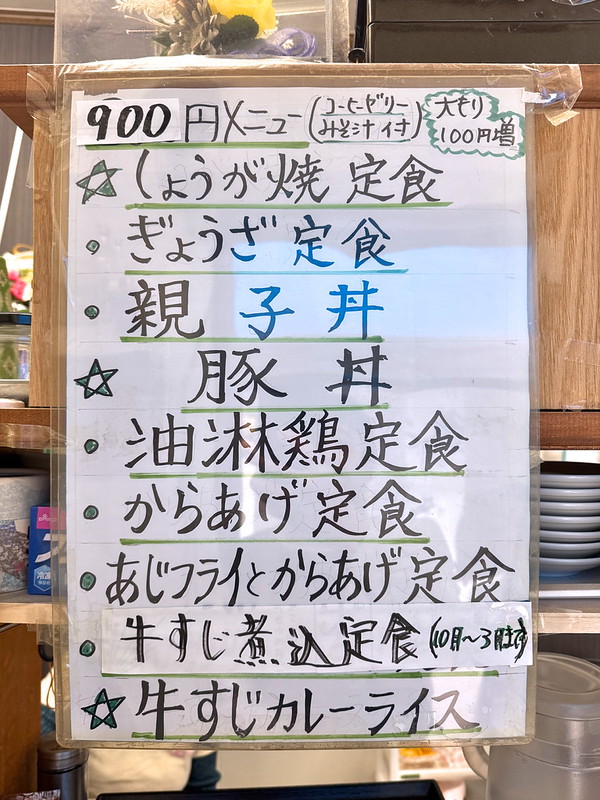 900円メニュー(コーヒーゼリー みそ汁付) 大もり 100円増
☆しょうが焼 定食
・ぎょうざ 定食
・親子丼
☆豚丼
・油淋鶏定食
・からあげ定食
・あじフライとからあげ定食
・牛すじ煮込定食(10月〜3月まで)
☆牛すじカレーライス